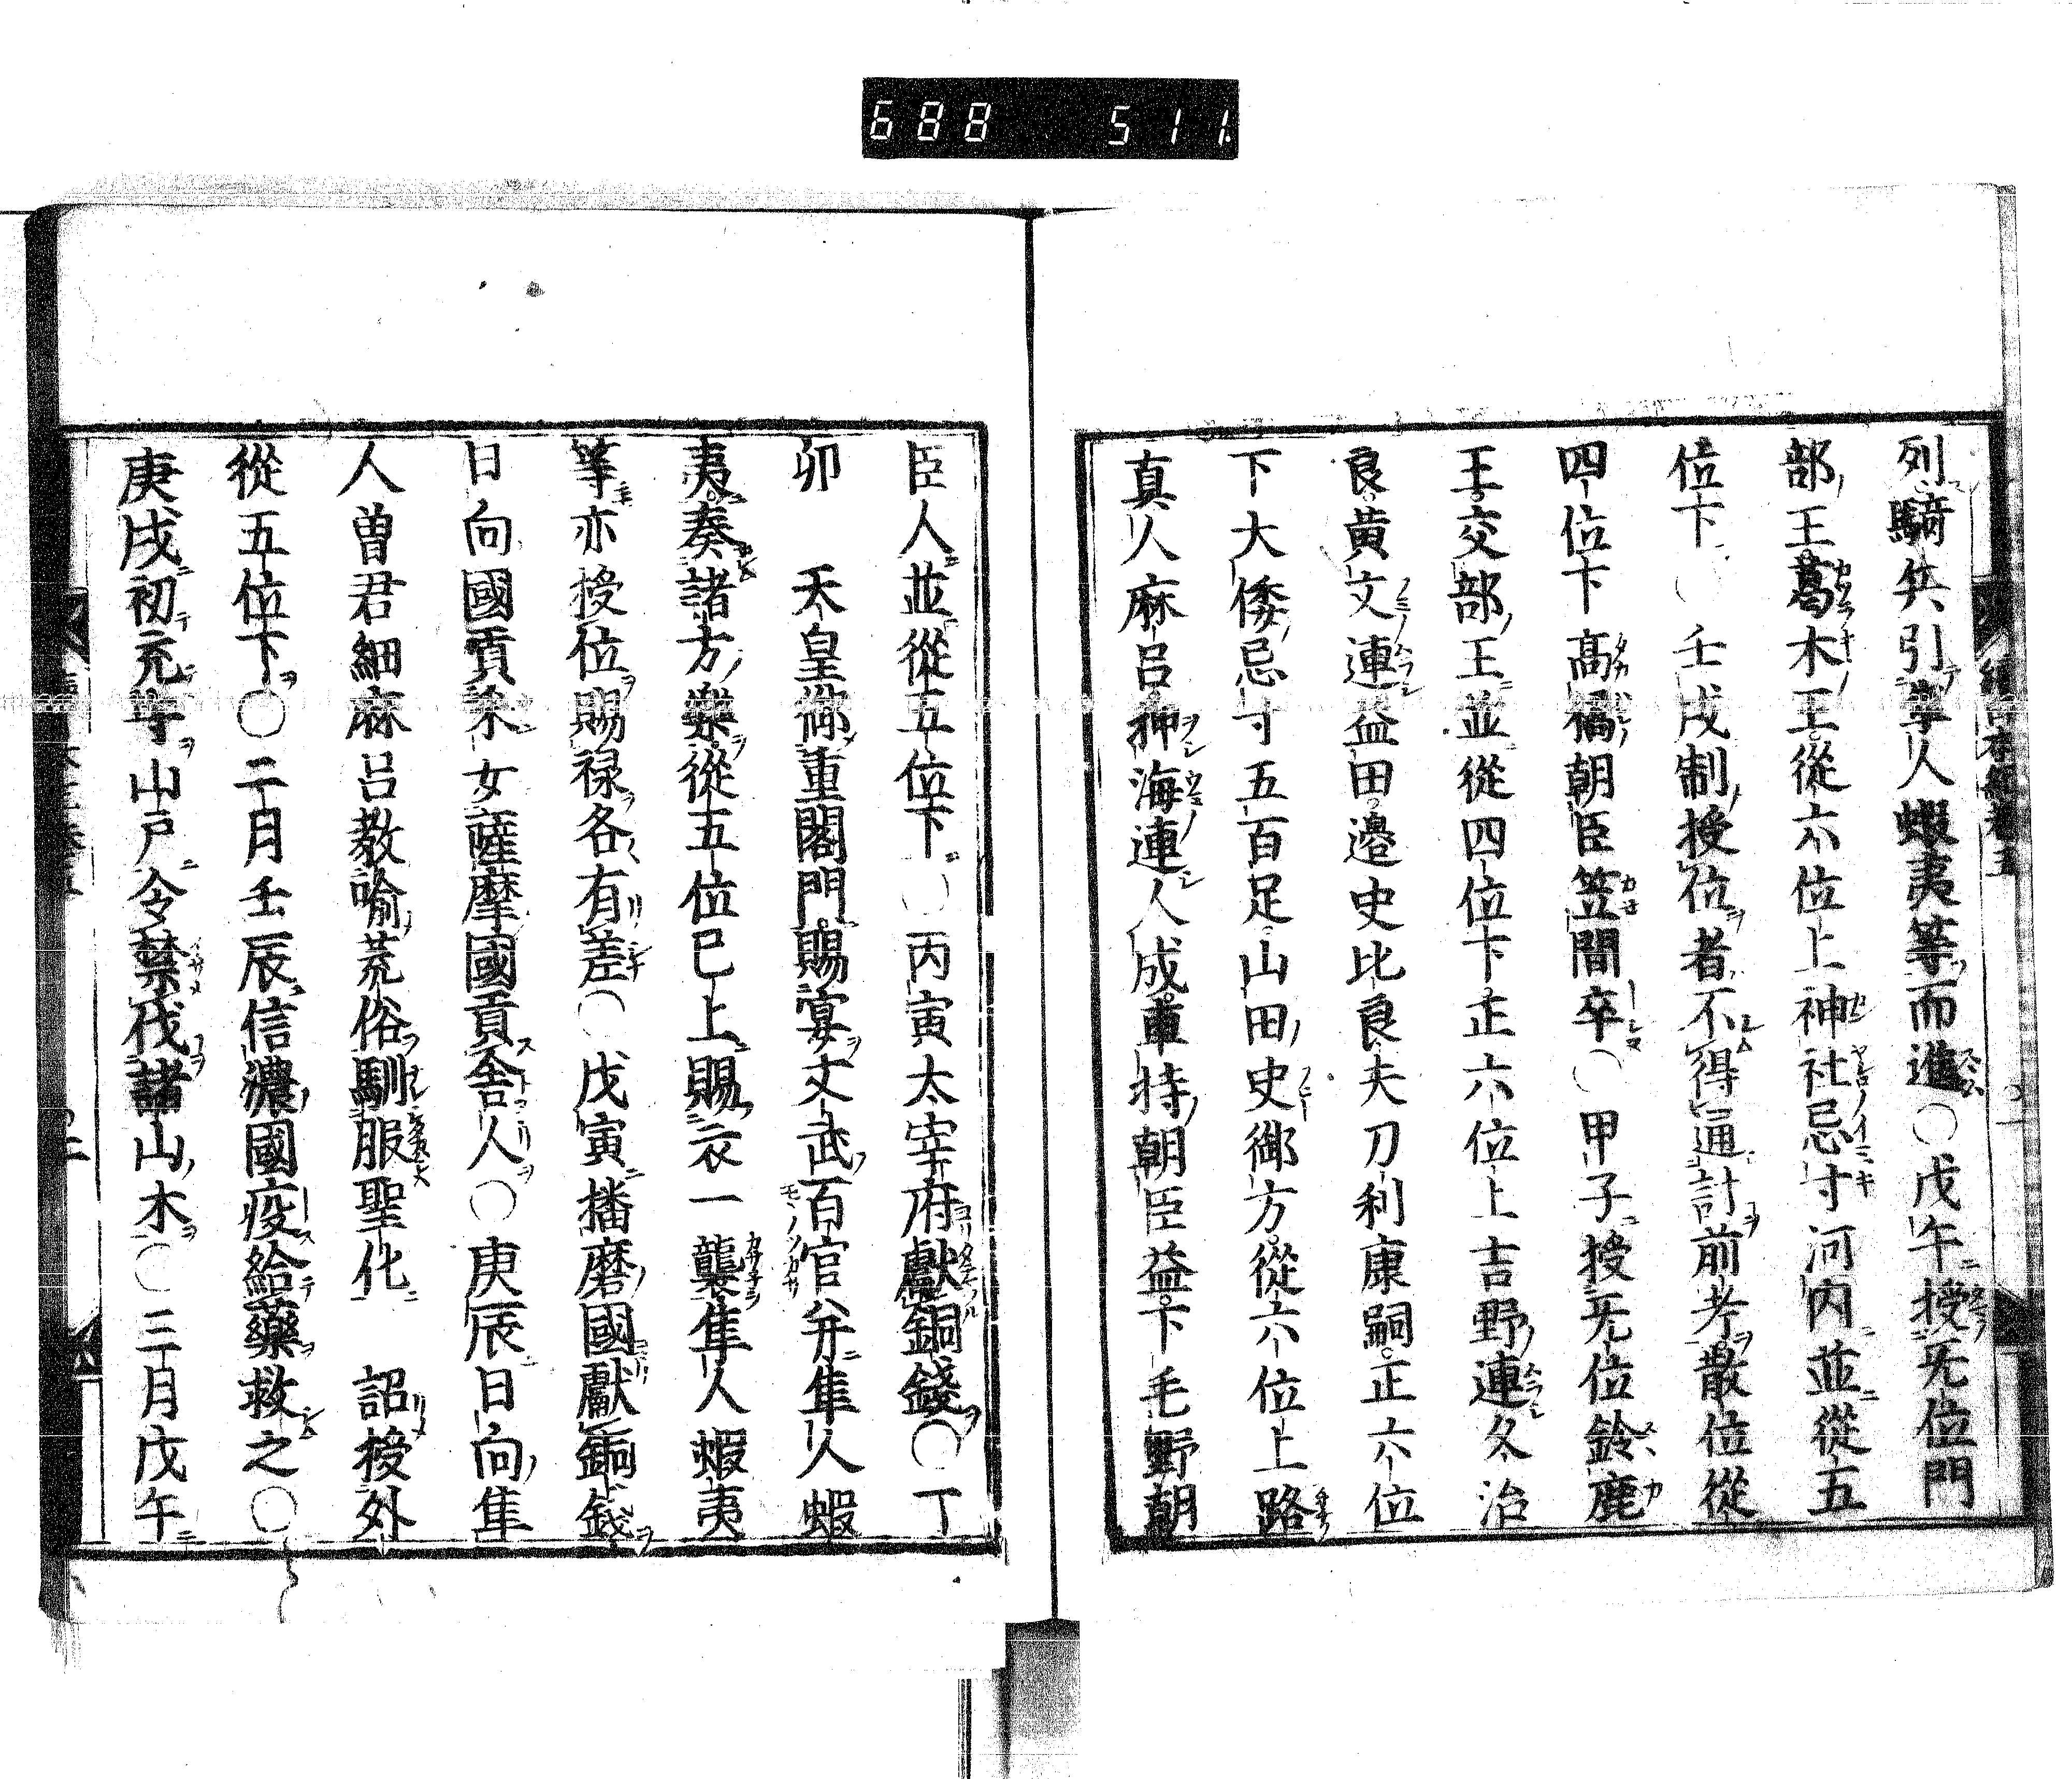 688 511
列騎兵引隼人蝦夷等而進〇戊午授无位門
部王葛木王從六位上神社忌寸河内並從五
位下〇壬戌制授位者不得逼計前考散位從
四位下高橋朝臣笠間卒〇甲子授无位鈴鹿
王交部王並從四位下正六位上吉野連久治
良黄文連益田邉史比良夫刀利康嗣正六位
下大倭忌寸五百足山田史御方從六位上路
真人麻呂押海連人成車持朝臣益下毛野朝
臣人並從五位下〇丙寅太宰府獻銅錢〇丁
卯 天皇御重閣門賜宴文武百官并隼人蝦
夷奏諸方樂從五位已上賜衣一襲隼人蝦夷
等亦授位賜禄各有差〇戊寅播磨國獻銅錢
日向國貢采女薩摩國貢舎人〇庚辰日向隼
人曽君細麻呂教喻荒俗馴服聖化 詔授外
從五位下〇二月壬辰信濃國疫給藥救之〇
庚戌初充守山戸令禁伐諸山木〇三月戊午